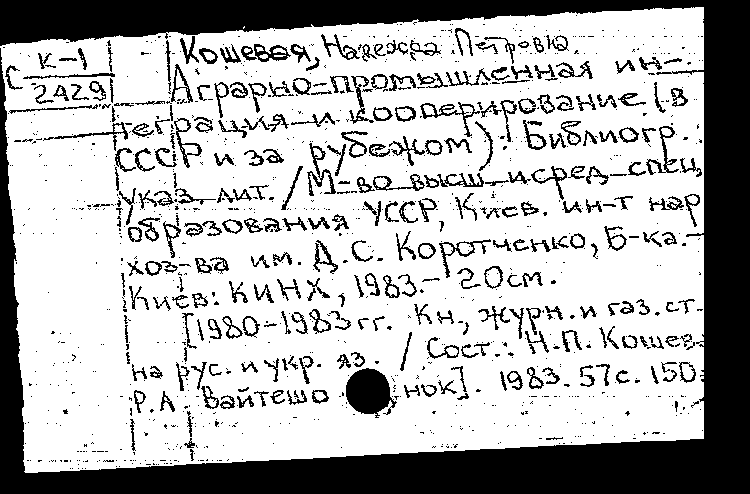 К-1
С 2429
Кошевая, Надежда Петровна.
Аграрно-промышленная ин-
теграция и кооперирование (в
СССР и за рубежом): Библиогр.
указ. лит. / М-во высш. и сред. спец.
образования УССР, Киев. ин-т нар
хоз-ва им. Д.С. Коротченко, Б-ка.-
Киев: КИНХ, 1983.- 20см.
[1980-1983 гг. Кн., журн. и газ. ст.
на рус. и укр. яз. / Сост.: Н.П. Кошев
Р.А. Вайтешо нок]. 1983. 57с. 150